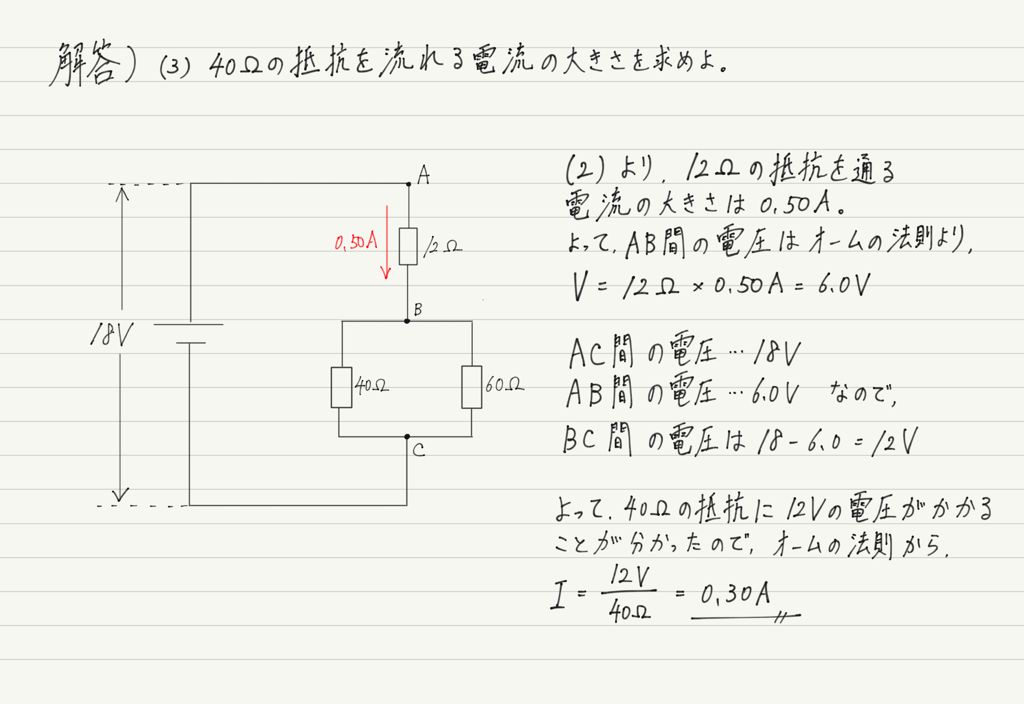 解答) (3) 40Ωの抵抗を流れる電流の大きさを求めよ。
A
0.50A
12Ω
B
18V
40Ω
60Ω
C
(2)より、12Ωの抵抗を通る
電流の大きさは0.50A。
よって、AB間の電圧はオームの法則より、
V = 12Ω × 0.50A = 6.0V
AC間の電圧…18V
AB間の電圧…6.0V なので、
BC間の電圧は18-6.0=12V
よって、40Ωの抵抗に12Vの電圧がかかる
ことが分かったので、オームの法則から、
I = 12V/40Ω = 0.30A